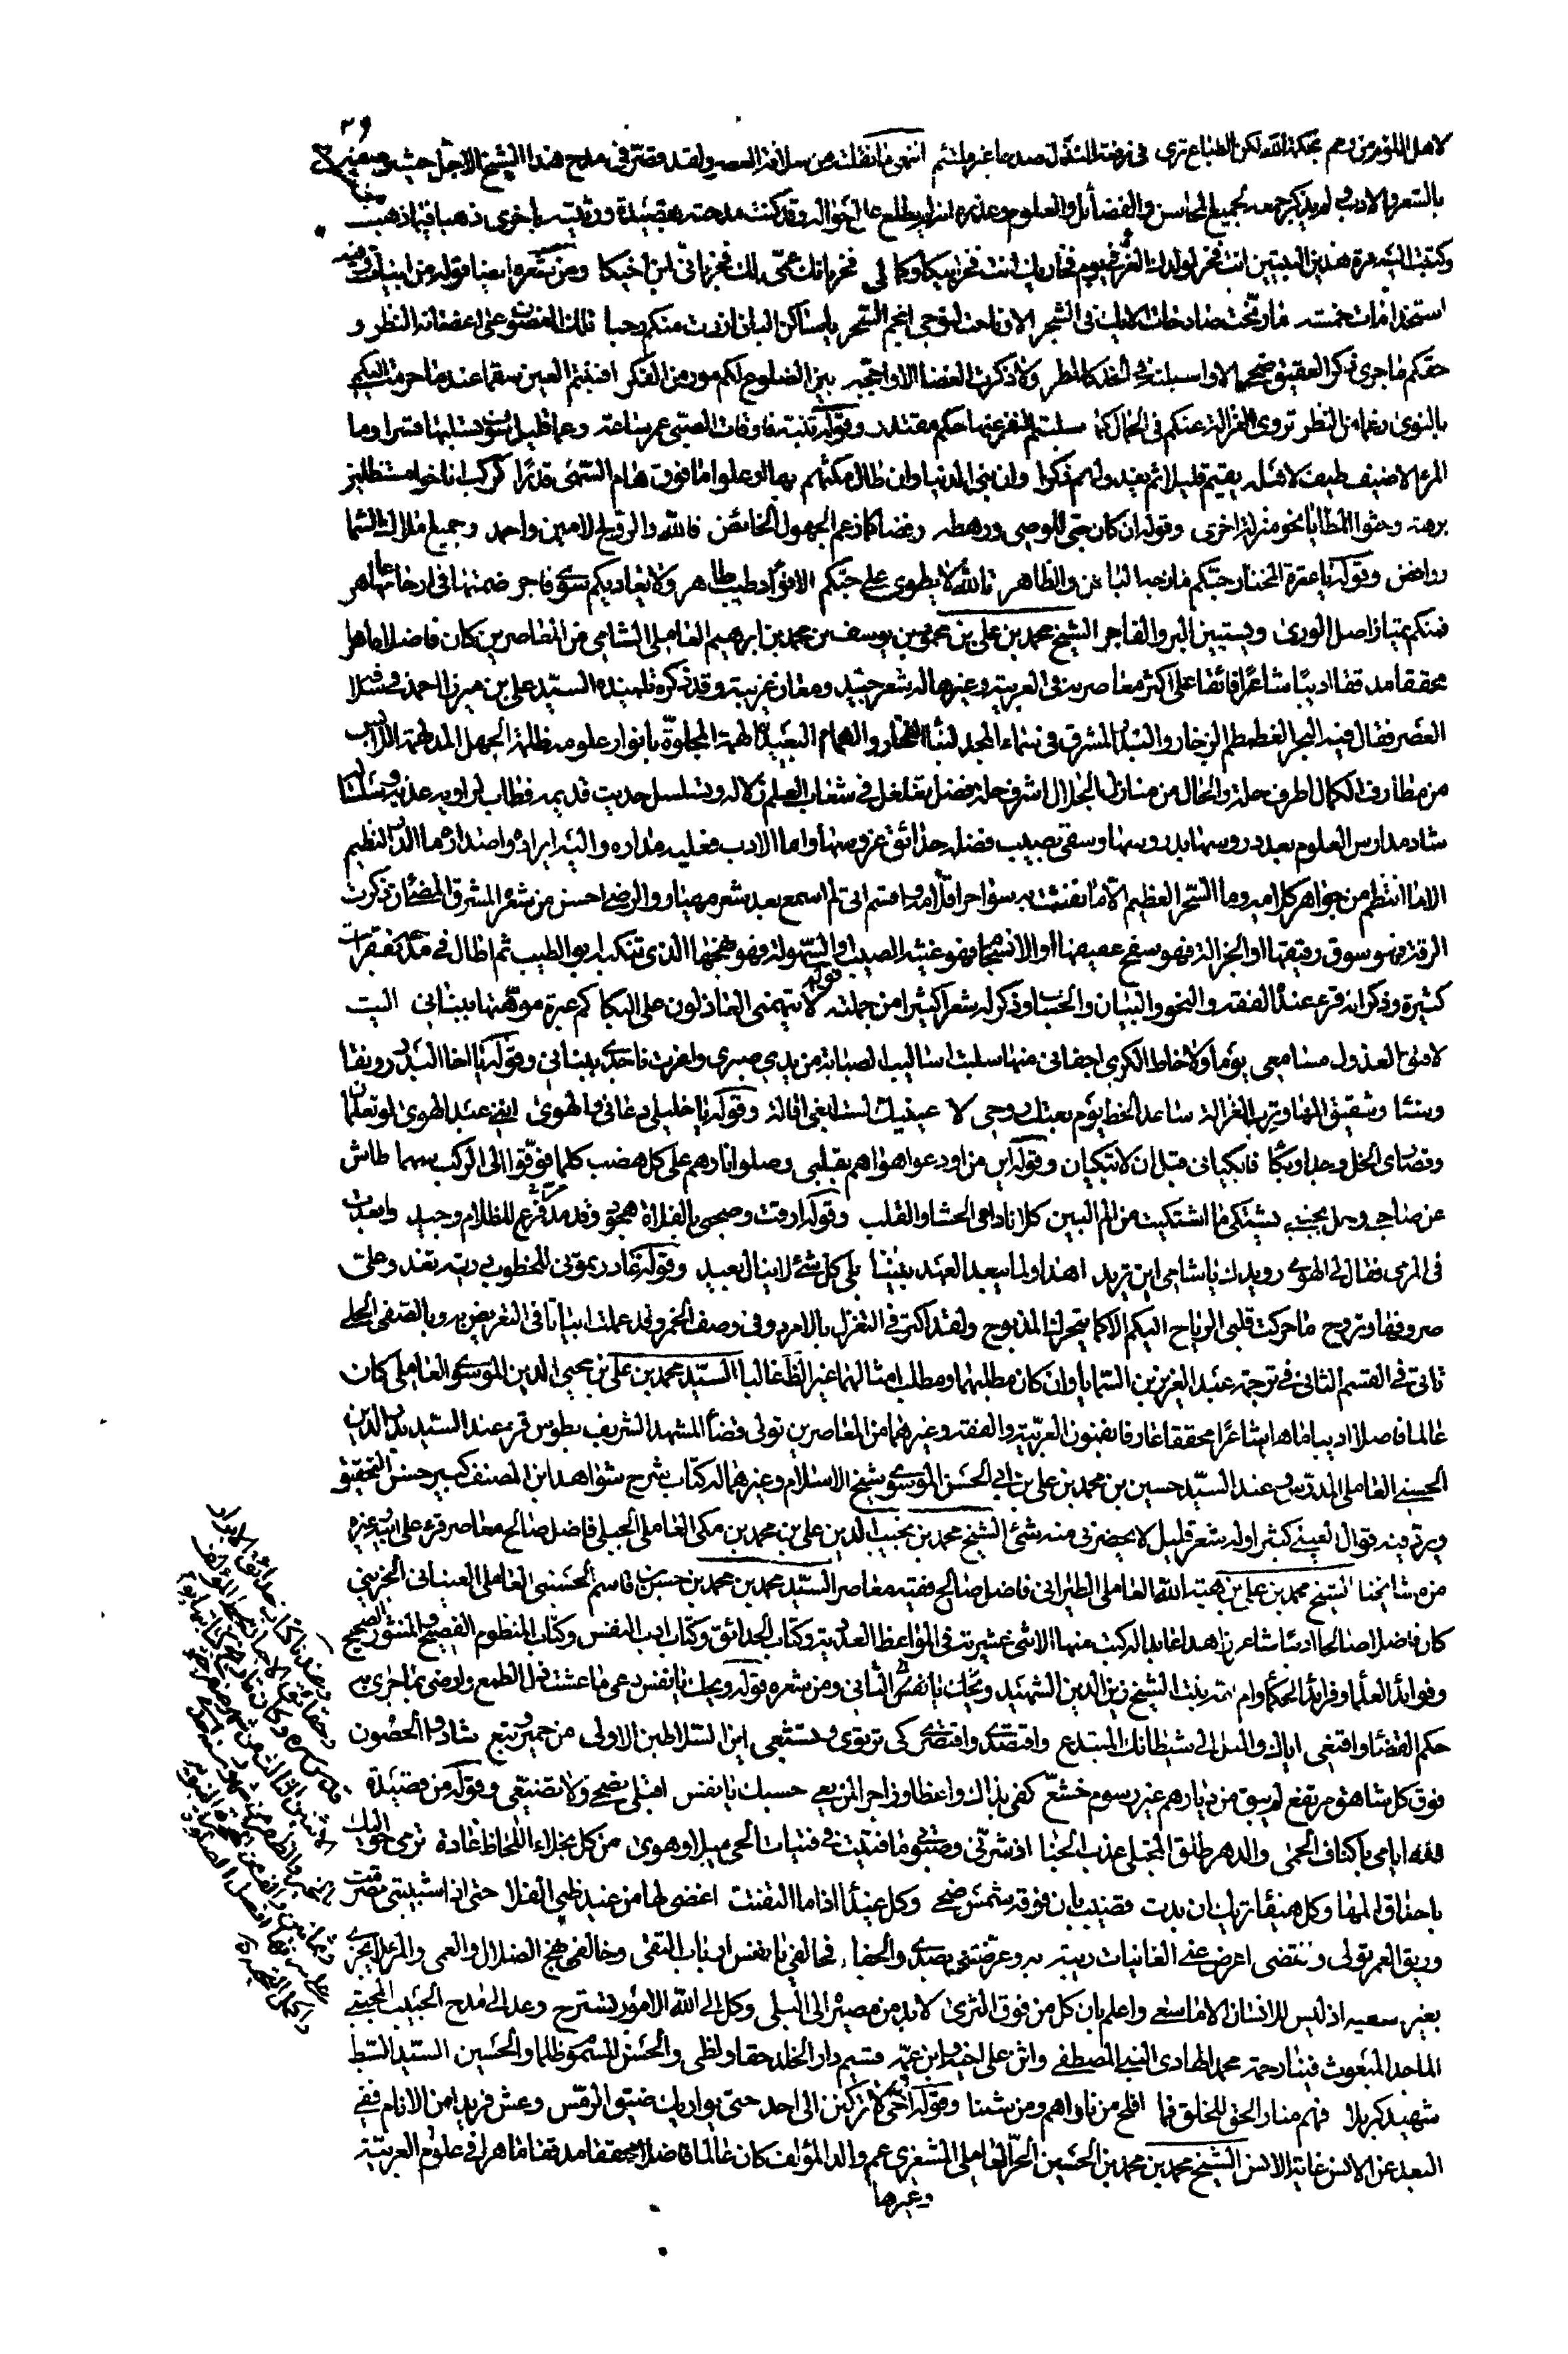 ٢٦
لاهل اللؤم من دهم بحكمة الله لكن الطباع ترى في نرضه التذلل صدعا غير ملتئم انتهى ما نقلت من سلافة العصر ولقد قصر في مدح هذا الشيخ الاجل حيث
بالشعر والادب ولم يذكر جمعه لجميع المحاسن والفضائل والعلوم وعذره انه لم يطلع على احواله وقد كنت مدحته بقصيدة ورثيته باخرى ذهبا فيما ذهب
وكتبت اليه مرة هذين البيتين انت فخر لولدك الغر في يوم فخار بك انت فخر ابيكا وكما لي فخر بانك عمي لك فخر باني ابن اخيكا ومن شعره ايضا قوله من ابيات فيه
استخدامات خمسة ما رنحت صادحات الايك في الشجر الا وناحت لنوحي انجم السحر يا ساكن البان ازرت منكم رحبا تلك الغصون على اعضائه النظر و
حقكم ما جرى ذكر العقيق ضحى الا واسبلته في الخد كالمطر ولا ذكرت الغضا الا واججه بين الضلوع لكم مور من الفكر افنيتم العين سقما عند ما حرمت اليكم
بالنوى رغما من النظر تروى الغزالة عنكم في الجمال كما سلبتم النفر عنها حكم مقتدر وقوله تنبه فاوقات الصبى عمر ساعة وعما قليل سوف تسلبها قسرا وما
المرء الا ضيف طيف لاهله يقيم قليلا ثم يغدو لهم ذكرا وان بني الدنيا وان طال مكثهم بها او علوا ما فوق هام السهى قدرا كركب اناخوا مستظلين
برهة وحثوا المطايا نحو منزلة اخرى وقوله ان كان حبي للوصي ورهطه رفضا كما زعم الجهول الخائض فالله والروح الامين واحمد وجميع ملاك السما
روافض وقوله يا عترة المختار حبكم ما زجه الباطن والظاهر تالله لا يطوي على حبكم الا فؤاد طيب طاهر ولا يعاديكم سوى فاجر ضمنها في ارحامها عاهر
فمنكم يمتاز اصل الورى ويستبين البر والفاجر الشيخ محمد بن علي بن محمود بن يوسف بن محمد بن ابرهيم العاملي الشامي من المعاصرين كان فاضلا ماهرا
محققا مدققا اديبا شاعرا فائقا على اكثر معاصريه في العربية وغيرها له شعر جيد ومعان غريبة وقد ذكره تلميذه السيد علي بن ميرزا احمد في سلافة
العصر فقال فيه البحر الغطمطم الزخار والبدر المشرق في سماء المجد بسناء الفخار والهمام البعيد الهمة المجلوة بانوار علومه ظلمة الجهل المدلهمة اللابس
من مطارف الكمال اطرف حلة والحال من منازل الجلال اشرف حلة فضل تغلغل في شعاب العلم زلاله وتسلسل حديث قديمه فطاب لراويه عذبه وسلساله
شاد مدارس العلوم بعد دروسها بدروسها وسقى بصيب فضله حدائق غروسها واما الادب فعليه مداره واليه ايراده واصداره وما الدر النظيم
الا ما انتظم من جواهر كلامه وما السحر العظيم الا ما نفثت به سواحر اقلامه واقسم اني لم اسمع بعد شعر مهيار والرضي احسن من شعره المشرق المضي ان ذكرت
الرقة فهو سوق رقيقها او الجزالة فهو سفح عقيقها او الانسجام فهو غيثه الصيب او السهولة فهو نهجها الذي تنكبه ابو الطيب ثم اطال في مدحه بفقرات
كثيرة وذكر انه قرء عنده الفقه والنحو والبيان والحساب وذكر له شعرا كثيرا من جملته قوله لا يتهمني العاذلون على البكا كم عبرة موهتها ببناني اليت
لا فتق العذول مسامعي يوما ولا خاط الكرى اجفاني منها سلبت اساليب الصبابة من يدي صبري واغرت ناجذي ببناني وقوله يا اخا البدر رونقا
وسنا وشقيق المها وترب الغزالة ساعد الحظ يوم بعتك روحي لا عينيك لست ابغي اقالة وقوله يا خليلي دعاني والهوى انني عبد الهوى لو تعلمان
وقصارى الخل وجدا وبكا فابكياني قبل ان لا تبكيان وقوله اين من اودعوا هواهم بقلبي وصلوا نارهم على كل هضب كلما فوقوا الى الركب سهما طاش
عن صاحبي وحل بجنبي يشتكي ما اشتكيت من الم البين كلانا دامي الحشا والقلب وقوله ارقت وصحبي بالفلاة هجود وقد مد فرع للظلام وجيد وابعدت
في المرمى فقال لي الهوى رويدك يا شامي اين تريد اهذا ولما يبعد العهد بيننا بلى كل شيء لا ينال بعيد وقوله تغادر موتي للخطوب دية تغدو على
صروفها وتروح ما حركت قلبي الرياح اليكم الا كما يتحرك المذبوح ولقد اكثر في التغزل بالامرد وفي وصف الخمر وقد عملت ابياتا في التعريض به وبالصفي الحلي
تاتي في القسم الثاني في ترجمة عبد العزيز بن السرايا وان كان مطلبهما ومطلب امثالهما غير الظاهر غالبا السيد محمد بن علي بن محيي الدين الموسوي العاملي كان
عالما فاضلا اديبا ماهرا شاعرا محققا عارفا بفنون العربية والفقه وغيرهما من المعاصرين تولى قضاء المشهد الشريف بطوس قرء عند السيد بدر الدين
الحسيني العاملي المدرس وعند السيد حسين بن محمد بن علي بن ابي الحسن الموسوي شيخ الاسلام وغيرهما له كتاب شرح شواهد ابن المصنف كبير حسن التحقيق
ويرد فيه اقوال العيني كثيرا وله شعر قليل لا يحضرني منه شيء الشيخ محمد بن نجيب الدين علي بن محمد بن مكي العاملي الجبيلي فاضل صالح معاصر قرء على ابيه وغيره
من مشايخنا الشيخ محمد بن علي بن هبة الله العاملي الطبراني فاضل صالح فقيه معاصر السيد محمد بن محمد بن حسن بن قاسم الحسيني العاملي العيناثي الجزيني
كان فاضلا صالحا اديبا شاعرا زاهدا عابدا له كتب منها الاثنى عشرية في المواعظ العددية وكتاب الحدائق وكتاب ادب النفس وكتاب المنظوم الفصيح والمنثور الصحيح
وفوائد العلماء وفرائد الحكماء وام امه بنت الشيخ زين الدين الشهيد الثاني ومن شعره قوله ويحك يا نفس دعي ما عشت ذل الطمع وارضي بما جرى به
حكم القضاء واقنعي اياك والميل الى شيطانك المبتدع واقتصدي واقتصري كي ترتوي وتشبعي اين السلاطين الاولى من حمير وتبع شادوا الحصون
فوق كل شاهق مرتفع لم يبق من ديارهم غير رسوم خشع كفى بذاك واعظا وزاجرا لمن يعي حسبك يا نفس اقبلي نصحي ولا تضيعي وقوله من قصيدة
لله ايامي باكناف الحمى والدهر طلق المجتلى عذب الجنا اذ شرتي وصبوتي ما فتيت في فتيات الحي ميلا وهوى من كل نجلاء اللحاظ غادة ترمي حواليك
باحداق المها وكل هيفاء تريك ان بدت قضيب بان فوقه شمس ضحى وكل غيداء اذا ما التفتت اغضى لها من غيد ظبي الفلا حتى اذا شبيبتي تصرمت
وريق العمر تولى وانقضى اعرض عني الغانيات ريبة بي وعرضتني بصدي والجفاء فخالفي يا نفس ارباب التقى وخالفي نهج الضلال والعمى والمرء لا يجزى
بغير سعيه اذ ليس للانسان الا ما سعى واعلم بان كل من فوق الثرى لا بد من مصيره الى البلى وكل الى الله الامور تسترح وعد الى مدح الحبيب المجتبى
الماجد المبعوث فينا رحمة محمد الهادي النبي المصطفى واثن على اخيه وابن عمه قسيم دار الخلد حقا ولظى والحسن المسموم ظلما والحسين السيد السبط
شهيد كربلا فهم منار الحق للخلق فما افلح من ناواهم ومن شنا وقوله اخي لا تركنن الى احد حتى يواريك ضيق الرمس وعش فريدا من الانام ففي
البعد عن الانس غاية الانس الشيخ محمد بن محمد بن الحسين الحر العاملي المشغري عم والد المؤلف كان عالما فاضلا محققا مدققا ماهرا في علوم العربية
وغيرها